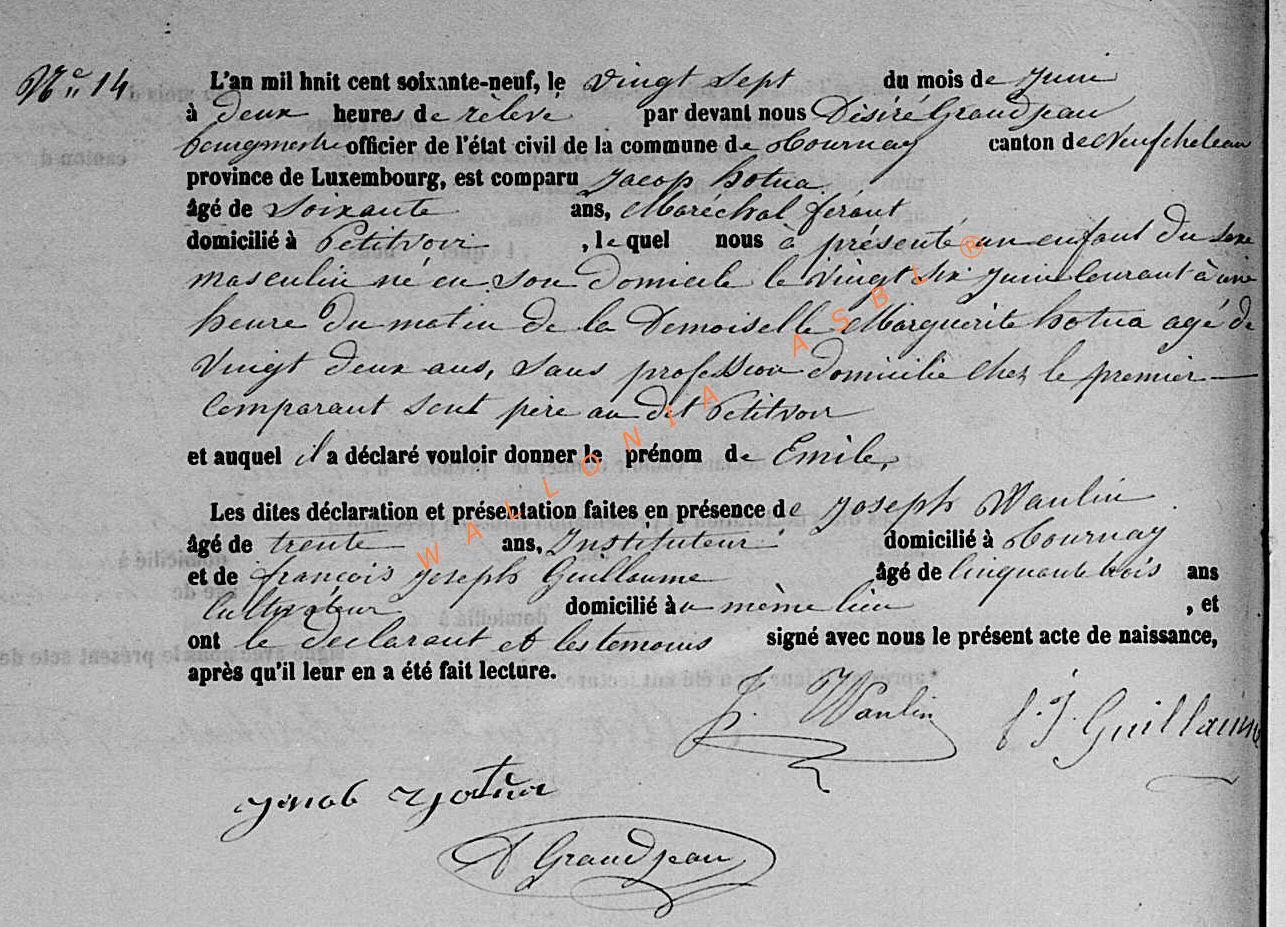 N° 14
L'an mil hnit cent soixante-neuf, le vingt sept du mois de Juin
à deux heures de rèlevé par devant nous Désiré Grandjean
bourgmestre officier de l'état civil de la commune de Tournay canton de Neufchateau
province de Luxembourg, est comparu Jacop hotua
âgé de Soixante ans, Maréchal ferant
domicilié à Petitvoir , le quel nous à présenté un enfant du sexe
masculin né en son domicile le vingt six Juin courant à une
heure du matin de la Demoiselle Marguerite hotua agé de
vingt deux ans, sans profession domicilié chez le premier
comparant sont père au dit Petitvoir
et auquel il a déclaré vouloir donner le prénom de Emile,
Les dites déclaration et présentation faites en présence de Joseph Waulin
âgé de trente ans, Instituteur domicilié à Tournay
et de françois Joseph Guillaume âgé de cinquante trois ans
Cultivateur domicilié au même lieu , et
ont le déclarant et les temoins signé avec nous le présent acte de naissance,
après qu'il leur en a été fait lecture.
J. Waulin f. J. Guillaume
hotua
D Grandjean
WALLONIA ASBL ®